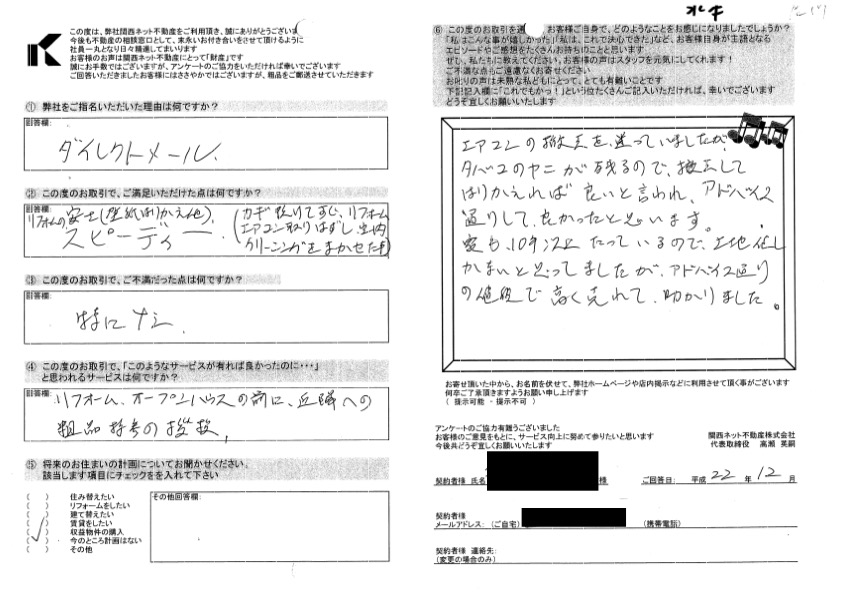 この度は、弊社関西ネット不動産をご利用頂き、誠にありがとうございま
今後も不動産の相談窓口として、末永いお付き合いをさせて頂けるように
社員一丸となり日々精進してまいります
お客様のお声は関西ネット不動産にとって「財産」です
誠にお手数ではございますが、アンケートのご協力をいただければ幸いでございます
ご回答いただきましたお客様にはささやかではございますが、粗品をご郵送させていただきます
① 弊社をご指名いただいた理由は何ですか？
回答欄:
ダイレクトメール.
② この度のお取引で、ご満足いただけた点は何ですか？
回答欄:
リフォームの安さ(壁紙はりかえ他)、
スピーディー
リフォーム
エアコン取りはずし、室内
クリーニングをまかせた事
③ この度のお取引で、ご不満だった点は何ですか？
回答欄:
特にナシ.
④ この度のお取引で、「このようなサービスが有れば良かったのに・・・」
と思われるサービスは何ですか？
回答欄:
リフォーム、オープンハウスの前に、近隣への
粗品持参の挨拶、
⑤ 将来のお住まいの計画についてお聞かせください。
該当します項目にチェックをを入れて下さい
( ) 住み替えたい
( ) リフォームをしたい
( ) 建て替えたい
( ) 賃貸をしたい
( ) 収益物件の購入
(✓) 今のところ計画はない
( ) その他
その他回答欄:
⑥ この度のお取引を通 お客様ご自身で、どのようなことをお感じになりましたでしょうか？
「私はこんな事が嬉しかった」「私は、これで決心できた」など、お客様自身が主語となる
エピソードやご感想をたくさんお持ちのことと思います
ぜひ、私たちに教えてください、お客様の声はスタッフを元気にしてくれます！
ご不満な点もご遠慮なくお寄せください
お叱りの声は未熟な私どもにとって、とても有難いことです
下記記入欄に「これでもかっ！」という位たくさんご記入いただければ、幸いでございます
どうぞ宜しくお願いいたします
エアコンの撤去を、迷っていましたが、
タバコのヤニが残るので、撤去して
はりかえれば良いと言われ、アドバイス
通りして、良かったと思います。
家も、10年以上たっているので、土地値し
かないと思ってましたが、アドバイス通り
の値段で高く売れて、助かりました。
お寄せ頂いた中から、お名前を伏せて、弊社ホームページや店内掲示などに利用させて頂く事がございます
何卒ご了承頂きますようお願い申し上げます
( 提示可能 ・ 提示不可 )
アンケートのご協力有難うございました
お客様のご意見をもとに、サービス向上に努めて参りたいと思います
今後共どうぞ宜しくお願いいたします
関西ネット不動産株式会社
代表取締役 高瀬 英嗣
契約者様 氏名 様 ご回答日: 平成 22 年 12 月
契約者様
メールアドレス: (ご自宅) (携帯電話)
契約者様 連絡先:
(変更の場合のみ)